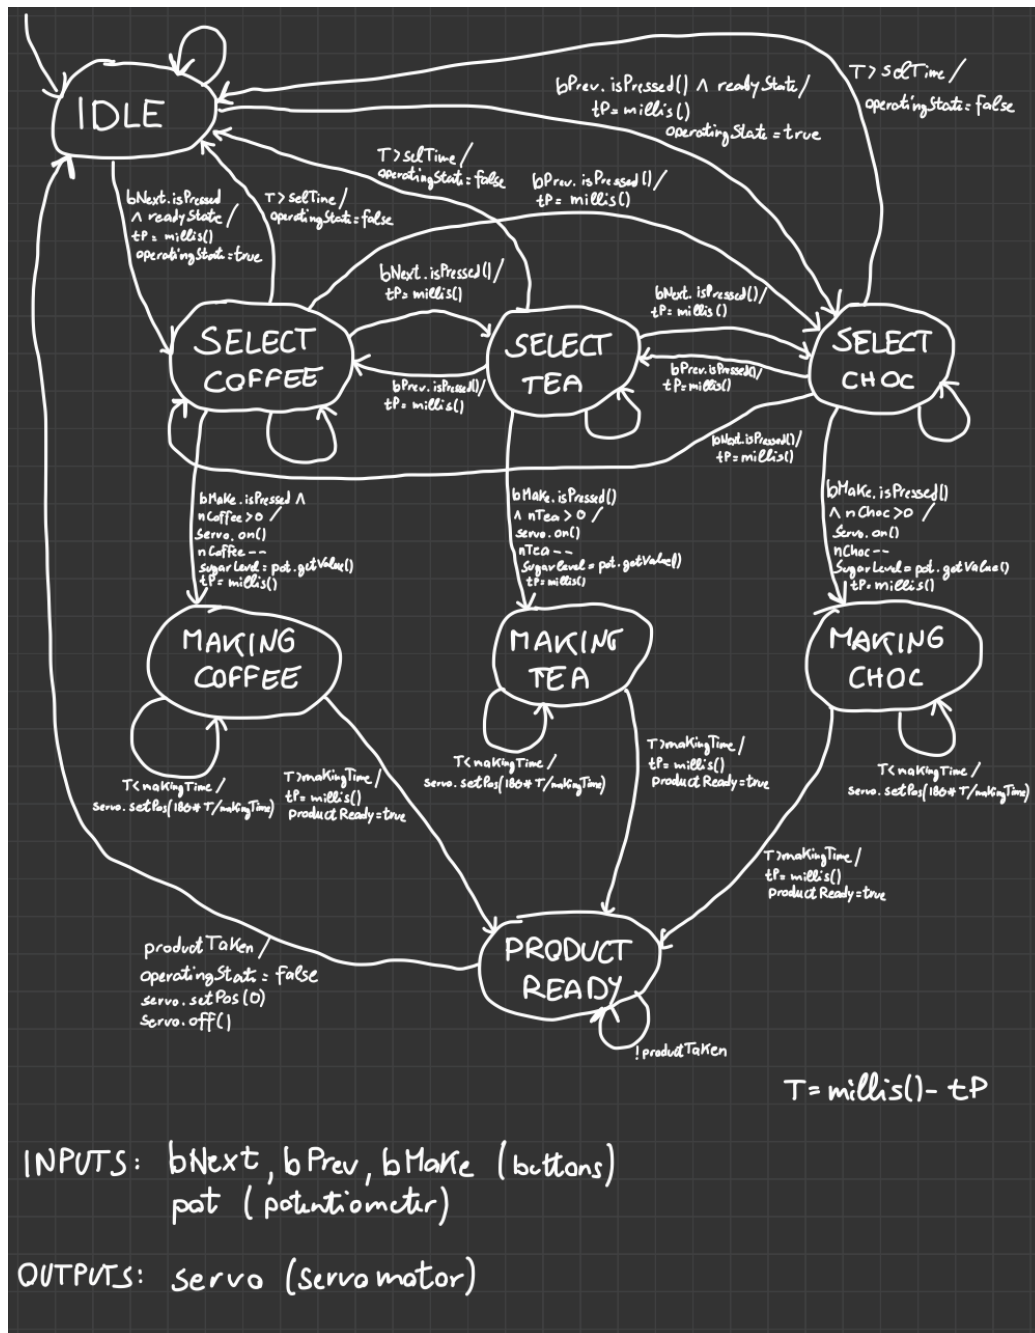 IDLE
bPrev.isPressed() ∧ readyState/
tP=millis()
operatingState=true
T>selTime/
operatingState=false
T>selTime/
operatingState=false
bNext.isPressed
∧ readyState/
tP=millis()
operatingState=true
T>selTime/
operatingState=false
bPrev.isPressed()/
tP=millis()
bNext.isPressed()/
tP=millis()
bNext.isPressed()/
tP=millis()
SELECT
COFFEE
SELECT
TEA
SELECT
CHOC
bPrev.isPressed()/
tP=millis()
bPrev.isPressed()/
tP=millis()
bNext.isPressed()/
tP=millis()
bMake.isPressed ∧
nCoffee>0 /
servo.on()
nCoffee--
sugarLevel=pot.getValue()
tP=millis()
bMake.isPressed()
∧ nTea>0 /
servo.on()
nTea--
sugarLevel=pot.getValue()
tP=millis()
bMake.isPressed()
∧ nChoc>0 /
servo.on()
nChoc--
sugarLevel=pot.getValue()
tP=millis()
MAKING
COFFEE
MAKING
TEA
MAKING
CHOC
T<makingTime/
servo.setPos(180*T/makingTime)
T>makingTime/
tP=millis()
productReady=true
T<makingTime/
servo.setPos(180*T/makingTime)
T>makingTime/
tP=millis()
productReady=true
T<makingTime/
servo.setPos(180*T/makingTime)
T>makingTime/
tP=millis()
productReady=true
productTaken/
operatingState=false
servo.setPos(0)
servo.off()
PRODUCT
READY
!productTaken
T=millis()-tP
INPUTS: bNext, bPrev, bMake (buttons)
pot (potentiometer)
OUTPUTS: servo (servomotor)